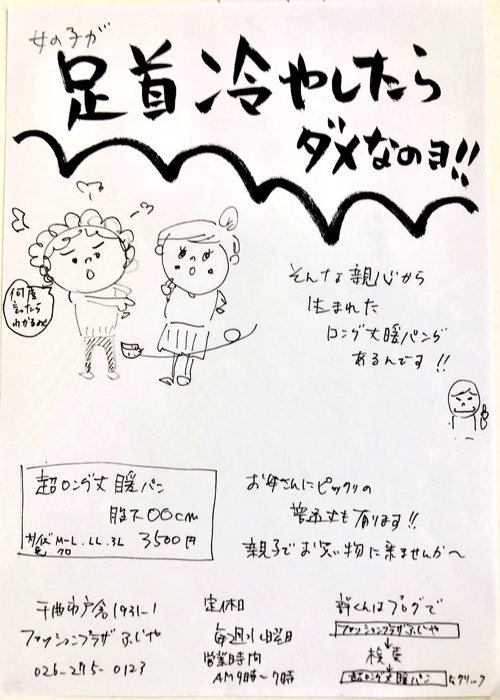 女の子が
足首冷やしたら
ダメなのヨ!!
何度
言ったら
わかるの
そんな親心から
生まれた
ロング丈暖パンが
あるんです!!
超ロング丈暖パン
股下00cm
M-L.LL.3L 3500円
クロ
お母さんにピッタリの
普通丈も有ります!!
親子でお買い物に来ませんか〜
千曲市戸倉1931-1
ファッションプラザふじや
026-275-0123
定休日
毎週水曜日
営業時間
AM9時〜7時
詳しくはブログで
ファッションプラザふじや
↓
検索
↓
超ロング丈暖パン クリック